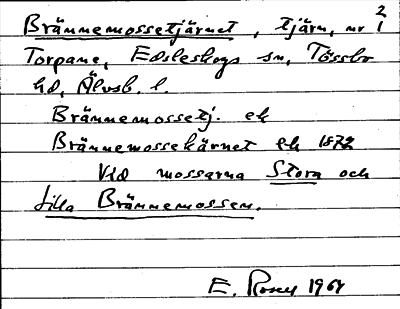 Brännemossetjärnet, tjärn, nr 2/1
Torpane, Edsleskogs sn, Tössbo
hd, Älvsb. l.
Brännemossetj. ek
Brännemossekärnet ek 1872
Vid mossarna Stora och
Lilla Brännemossen.
E. Rosell 1964